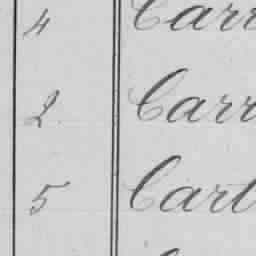 4 Carr
2 Carr
5 Cart